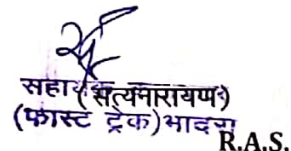 (सत्यनारायण)
सहा
(फास्ट ट्रेक) भादरा
R.A.S.